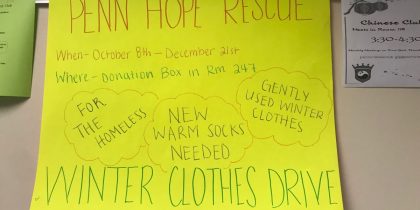 PENN HOPE RESCUE
When- October 8th - December 21st
Where- Donation Box in Rm 247
FOR
THE
HOMELESS
NEW
WARM SOCKS
NEEDED
GENTLY
USED WINTER
CLOTHES
WINTER CLOTHES DRIVE
Chinese Club
3:30-4:30